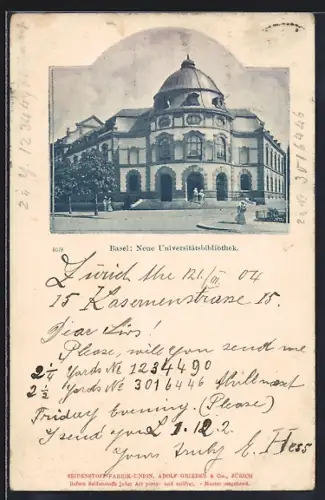 4058 Basel: Neue Universitätsbibliothek.
Zürich the 12/III 04
15 Kasernenstrasse 15.
Dear Sirs!
Please, will you send me
2¼ Yards No 1234490
2½ Yards No 3016446 till next
Friday Evening. (Please)
I send you £ 1.12.2.
Yours truly E. Hess
SEIDENSTOFF-FABRIK-UNION, ADOLF GRIEDER & Cie., ZÜRICH
liefern Seidenstoffe jeder Art porto- und zollfrei. - Muster umgehend.
3016446